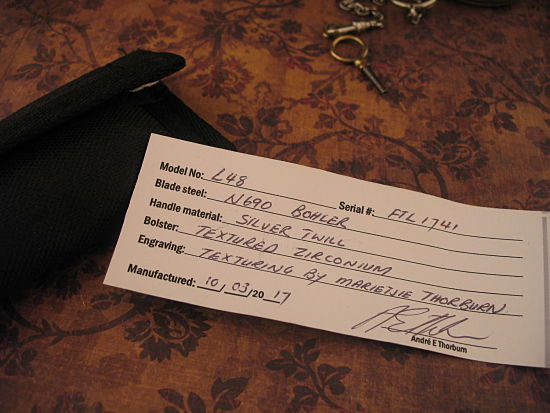 Model No: L48
Blade steel: N690 BOHLER Serial #: FTL1741
Handle material: SILVER TWILL
Bolster: TEXTURED ZIRCONIUM
Engraving: TEXTURING BY MARIETJIE THORBURN
Manufactured: 10/03/2017
André E Thorburn